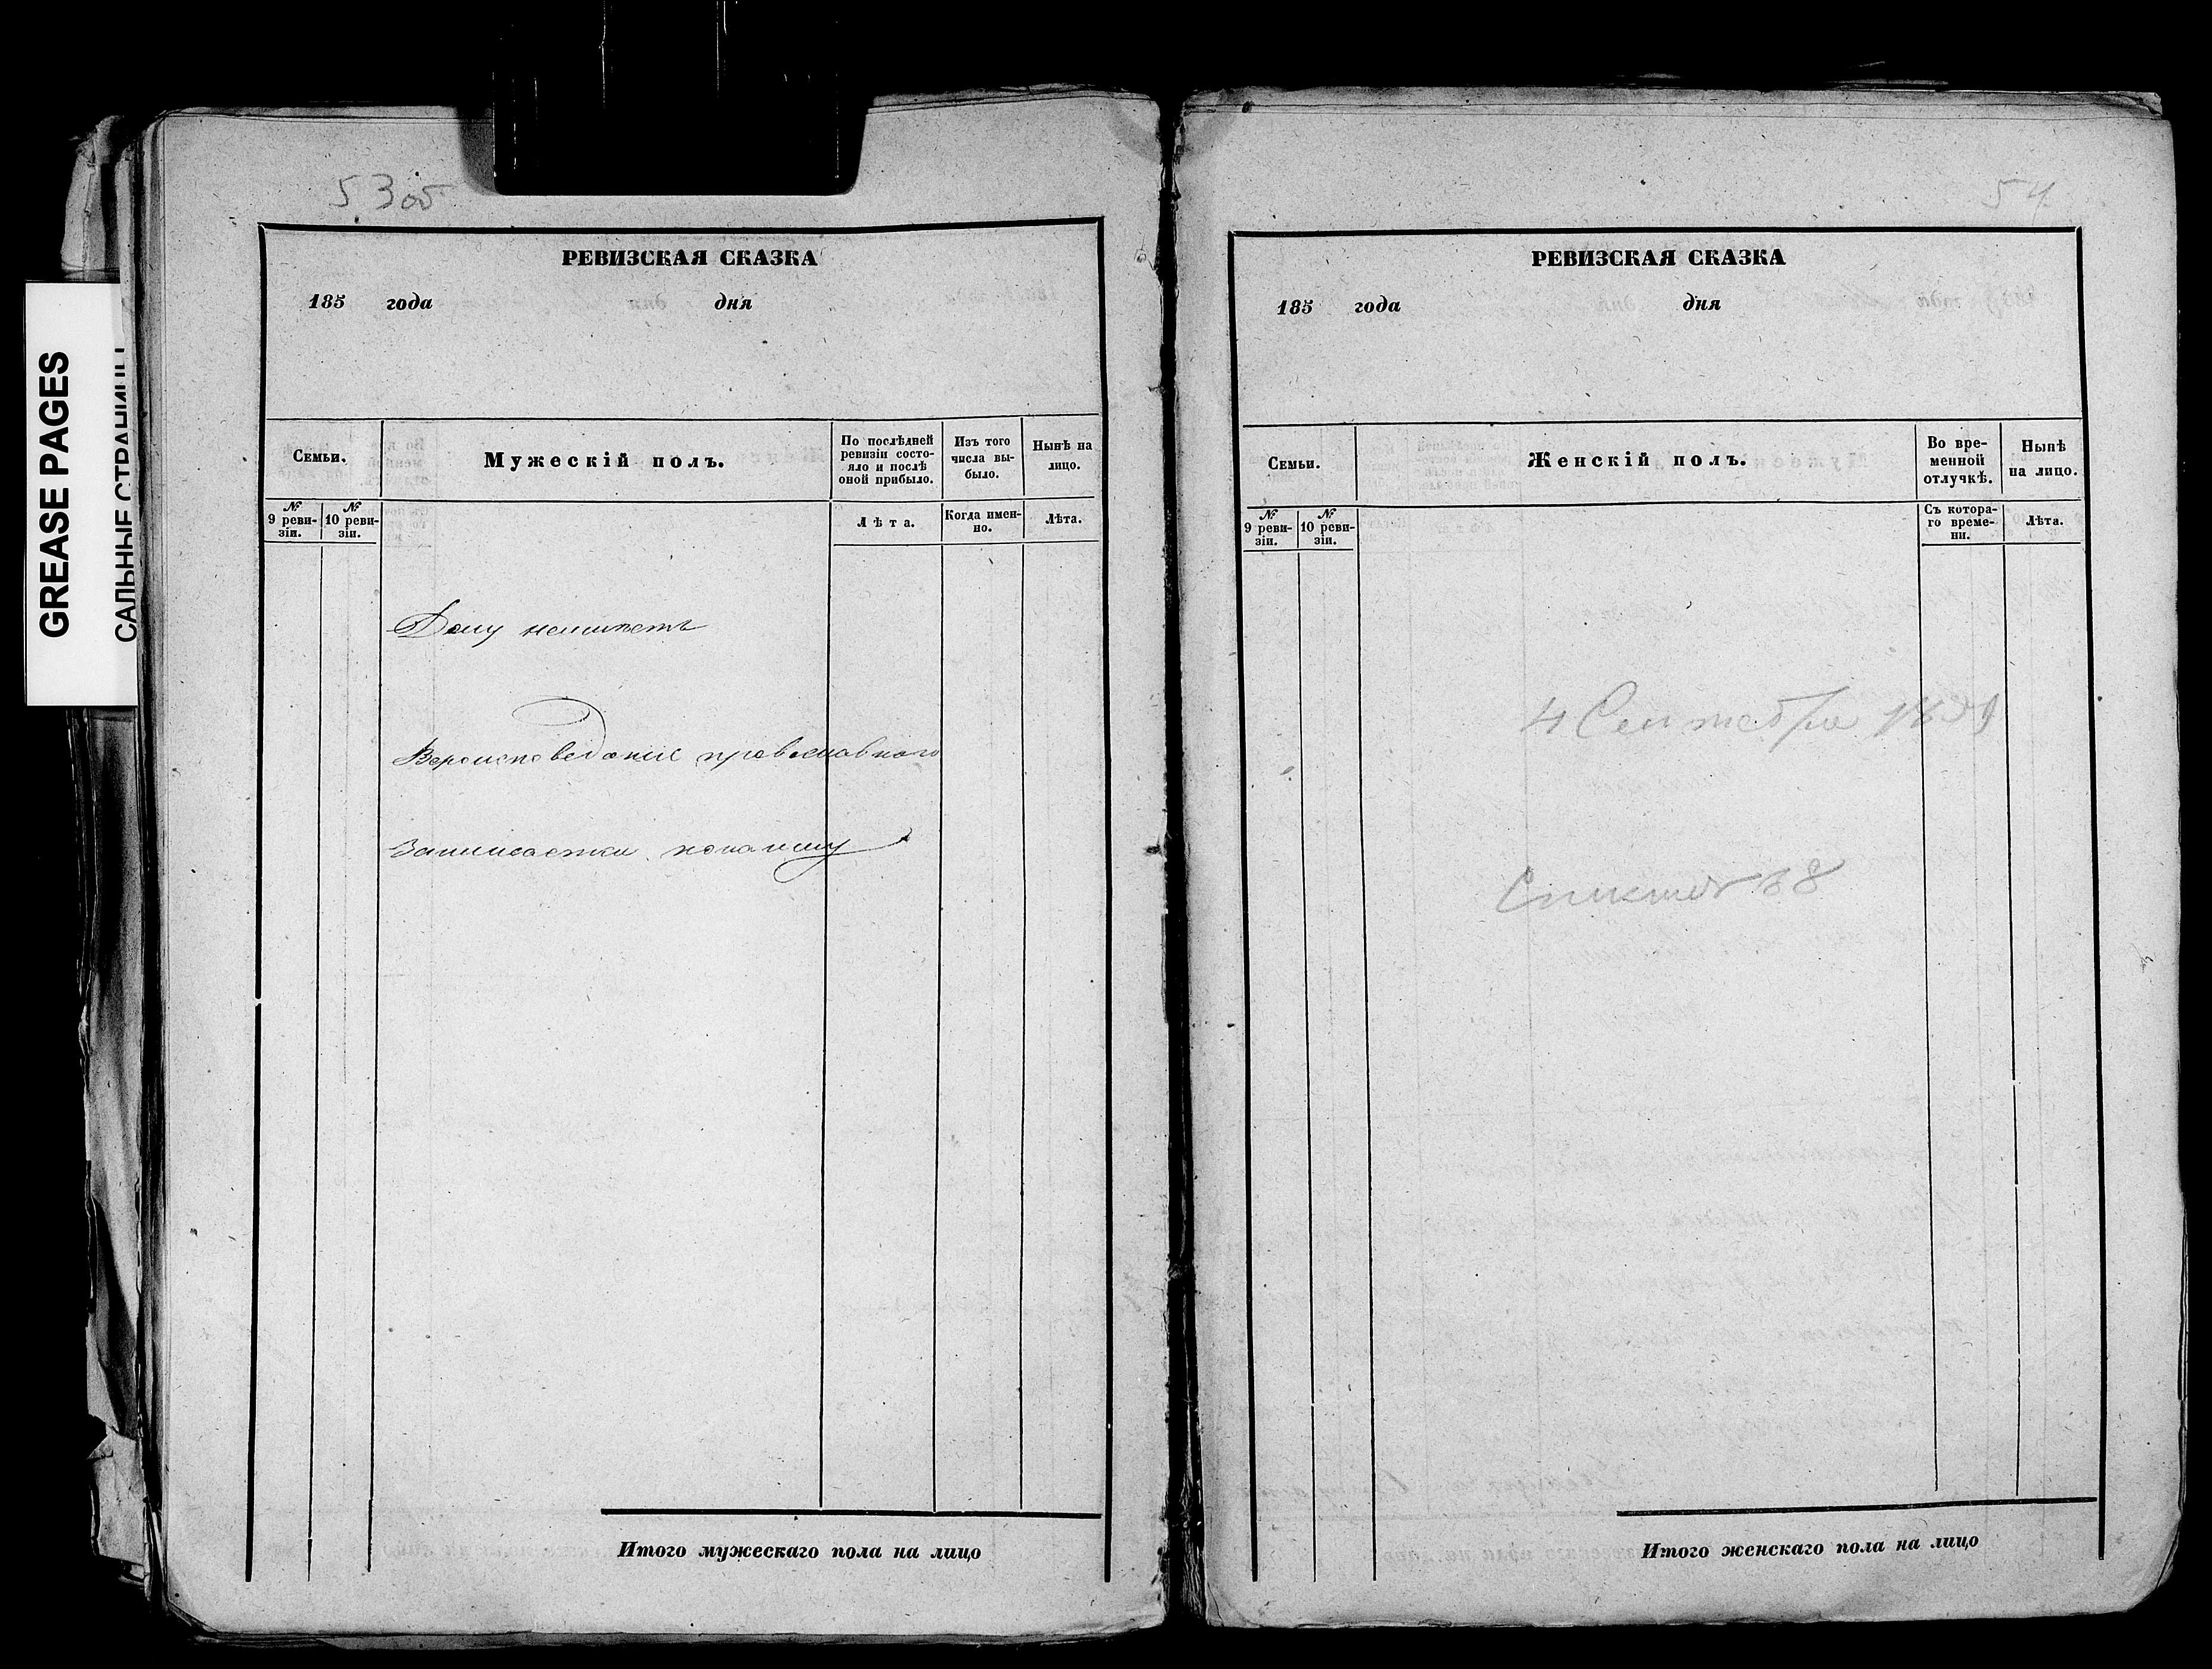 GREASE PAGES
САЛЬНЫЕ СТРАНИЦЫ
53об
РЕВИЗСКАЯ СКАЗКА
185 года дня
Семьи.
Мужескій полъ.
По послѣдней
ревизіи состо-
яло и послѣ
оной прибыло.
Изъ того
числа вы-
было.
Нынѣ на
лицо.
№
9 реви-
зіи.
№
10 реви-
зіи.
Лѣта.
Когда имен-
но.
Лѣта.
Дому неимѣетъ
Вероисповеданіе православного
Итого мужескаго пола на лицо
54
РЕВИЗСКАЯ СКАЗКА
185 года дня
Семьи.
Женскій полъ.
Во вре-
менной
отлучкѣ.
Нынѣ
на лицо.
№
9 реви-
зіи.
№
10 реви-
зіи.
Съ котора-
го време-
ни.
Лѣта.
4 Сентября
Итого женскаго пола на лицо